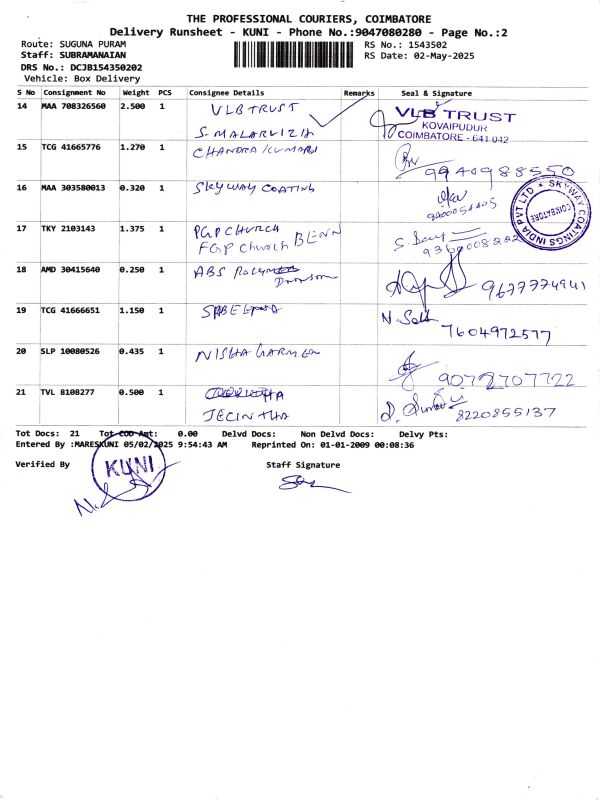 THE PROFESSIONAL COURIERS, COIMBATORE
Delivery Runsheet - KUNI - Phone No.:9047080280 - Page No.:2
Route: SUGUNA PURAM RS No.: 1543502
Staff: SUBRAMANAIAN RS Date: 02-May-2025
DRS No.: DCJB154350202
Vehicle: Box Delivery
S No Consignment No Weight PCS Consignee Details Remarks Seal & Signature
14 MAA 708326560 2.500 1 VLB TRUST VLB TRUST
S. MALARVIZH KOVAIPUDUR
COIMBATORE - 641 042
15 TCG 41665776 1.270 1 CHANDRA KUMARI
9940988550
16 MAA 303580013 0.320 1 SKYWAY COATING
SKYWAY COATINGS INDIA PVT LTD
COIMBATORE
17 TKY 2103143 1.375 1 PGP CHURCH
FGP Church BENN
18 AMD 30415640 0.250 1 ABS
9677774941
19 TCG 41666651 1.150 1
7604972577
20 SLP 10080526 0.435 1 NISHA GARMEN
9072707722
21 TVL 8108277 0.500 1
JECINTHA 8220855137
Tot Docs: 21 Tot COD Amt: 0.00 Delvd Docs: Non Delvd Docs: Delvy Pts:
Entered By :MARESKUNI 05/02/2025 9:54:43 AM Reprinted On: 01-01-2009 00:08:36
Verified By Staff Signature
KUNI